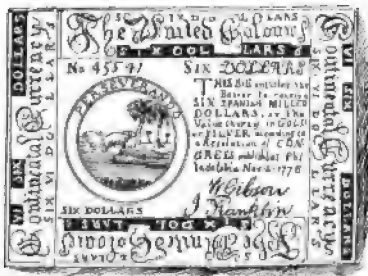 The United Colonies
SIX DOLLARS
No 45541 SIX DOLLARS
PERSEVERANDO
THIS Bill entitles the
Bearer to receive
SIX SPANISH MILLED
DOLLARS, or the
Value thereof in GOLD
or SILVER, according to
a Resolution of CON-
GRESS published Phi-
ladelphia Nov. 2. 1776
W Gibson
J Franklin
SIX DOLLARS
SIX DOLLARS
The United Colonies
Continental Currency
VI SIX DOLLARS
SIX VI DOLLARS
Continental Currency
SIX VI DOLLARS
VI SIX DOLLARS